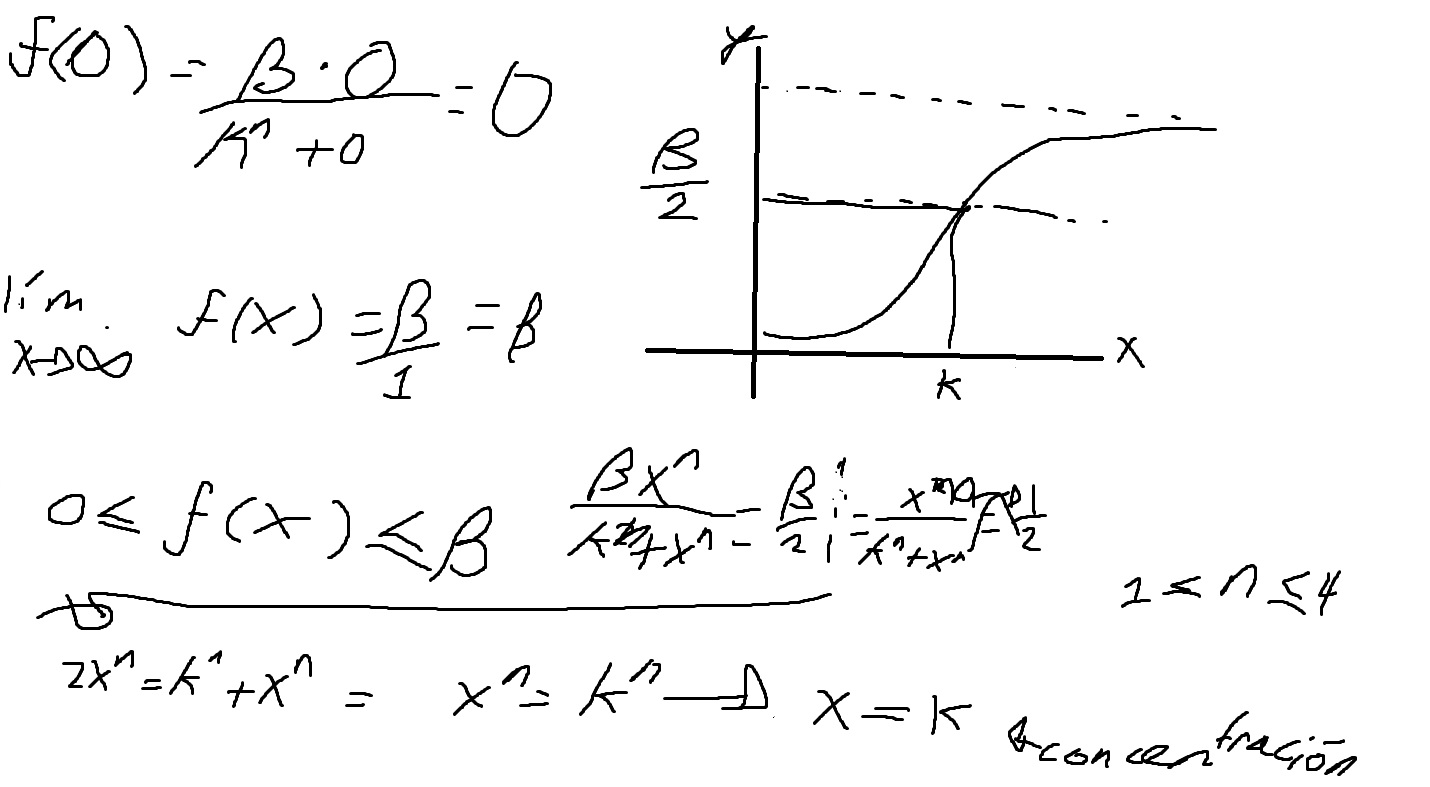 f(0) = β · 0 / (k^n + 0) = 0
y
β/2
x
k
lím x→∞ f(x) = β/1 = β
0 ≤ f(x) ≤ β
βx^n / (k^n + x^n) = β/2
= x^n / (k^n + x^n) = 1/2
1 ≤ n ≤ 4
2x^n = k^n + x^n = x^n = k^n → x = k
concentración